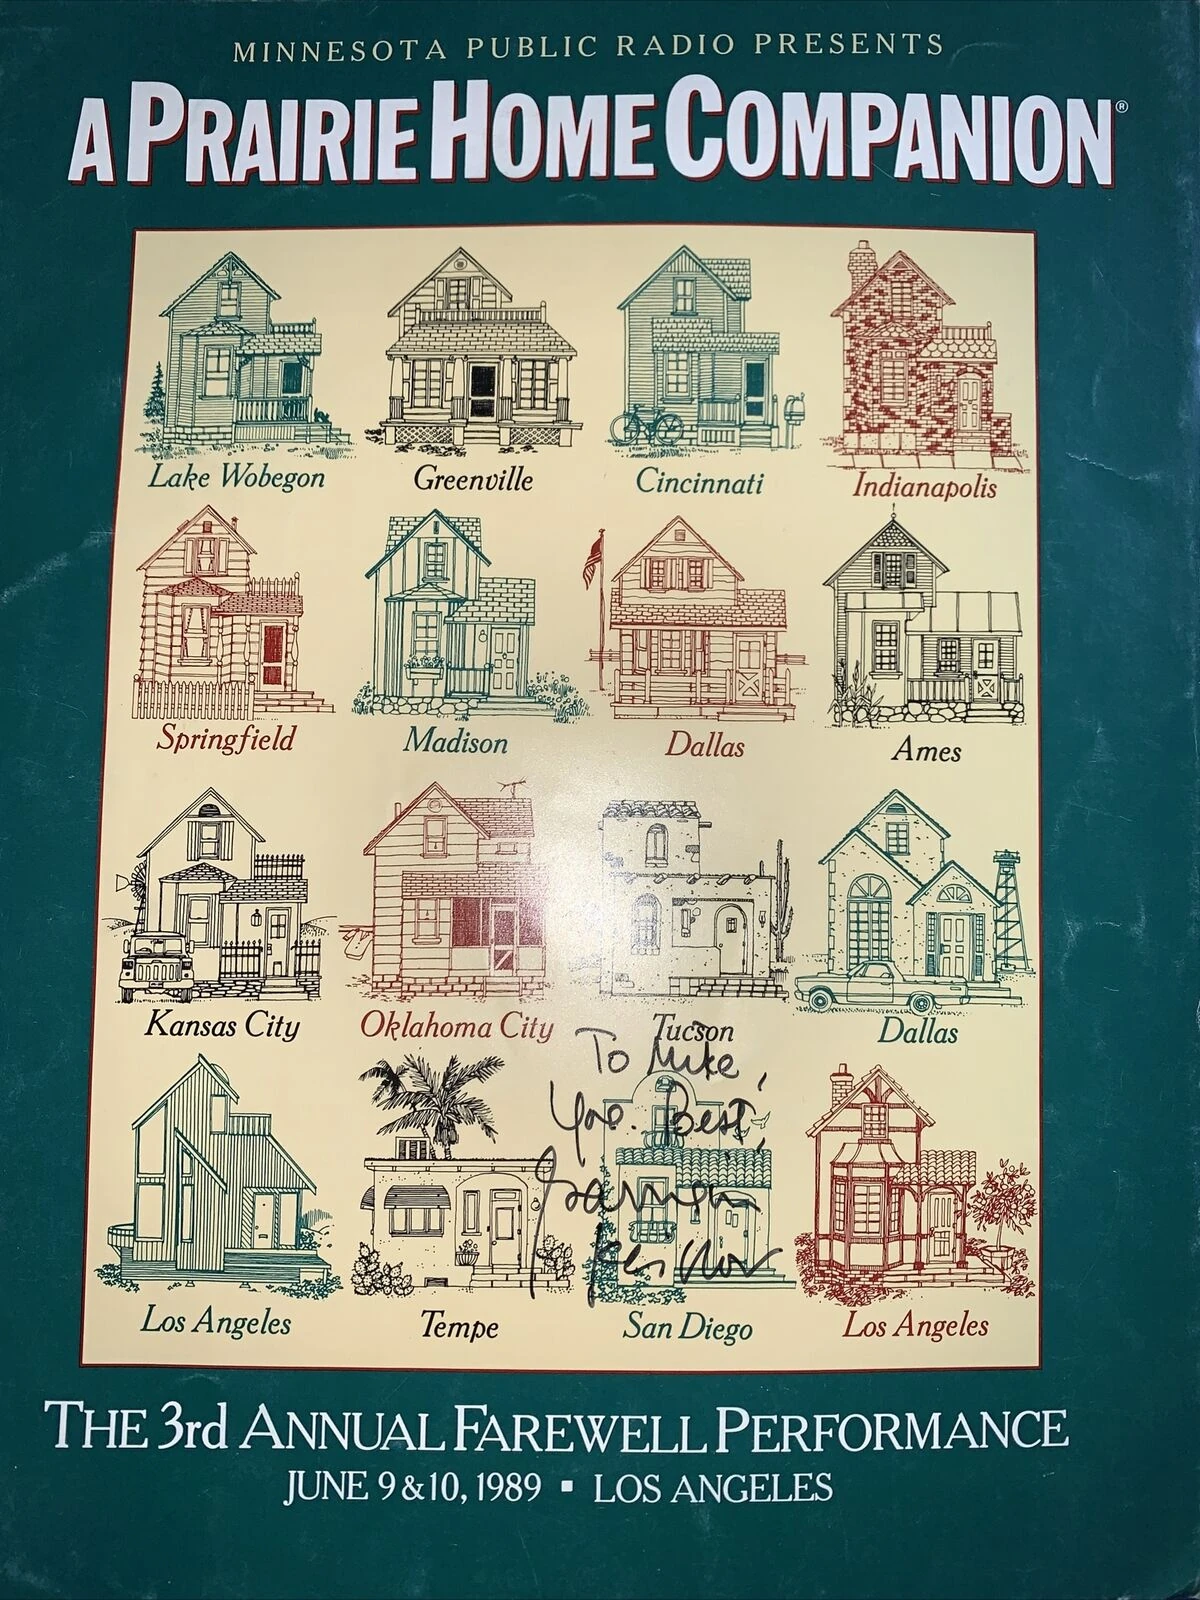 MINNESOTA PUBLIC RADIO PRESENTS
A PRAIRIE HOME COMPANION®
Lake Wobegon Greenville Cincinnati Indianapolis
Springfield Madison Dallas Ames
Kansas City Oklahoma City Tucson Dallas
To Mike,
Best,
Garrison
Keillor
Los Angeles Tempe San Diego Los Angeles
THE 3rd ANNUAL FAREWELL PERFORMANCE
JUNE 9 & 10, 1989 ▪ LOS ANGELES